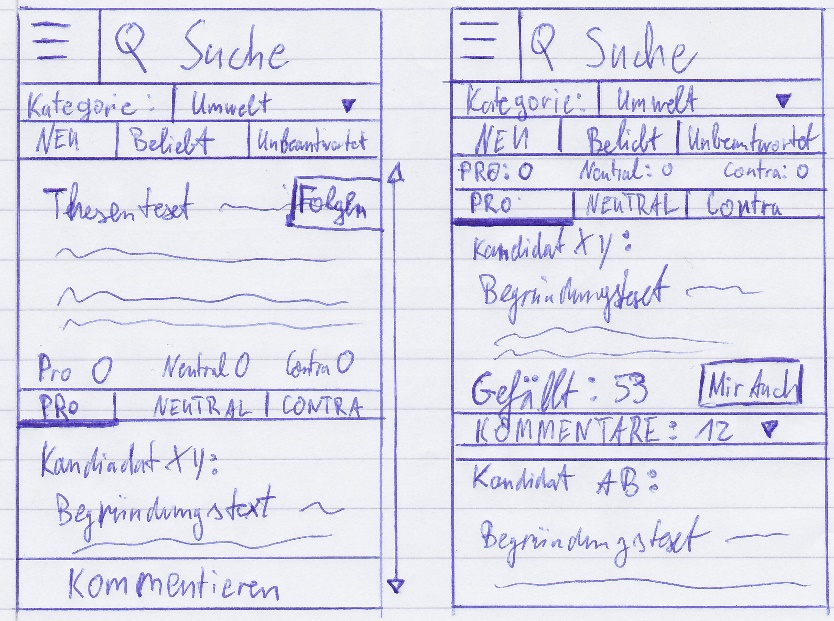 Q Suche
Kategorie: Umwelt
NEU Beliebt Unbeantwortet
Thesentest Folgen
Pro 0 Neutral 0 Contra 0
PRO NEUTRAL CONTRA
Kandiadat XY:
Begründungstext
Kommentieren
Q Suche
Kategorie: Umwelt
NEU Beliebt Unbeantwortet
PRO: 0 Neutral: 0 Contra: 0
PRO NEUTRAL Contra
Kandidat XY:
Begründungstext
Gefällt: 53 Mir Auch
KOMMENTARE: 12
Kandidat AB:
Begründungstext